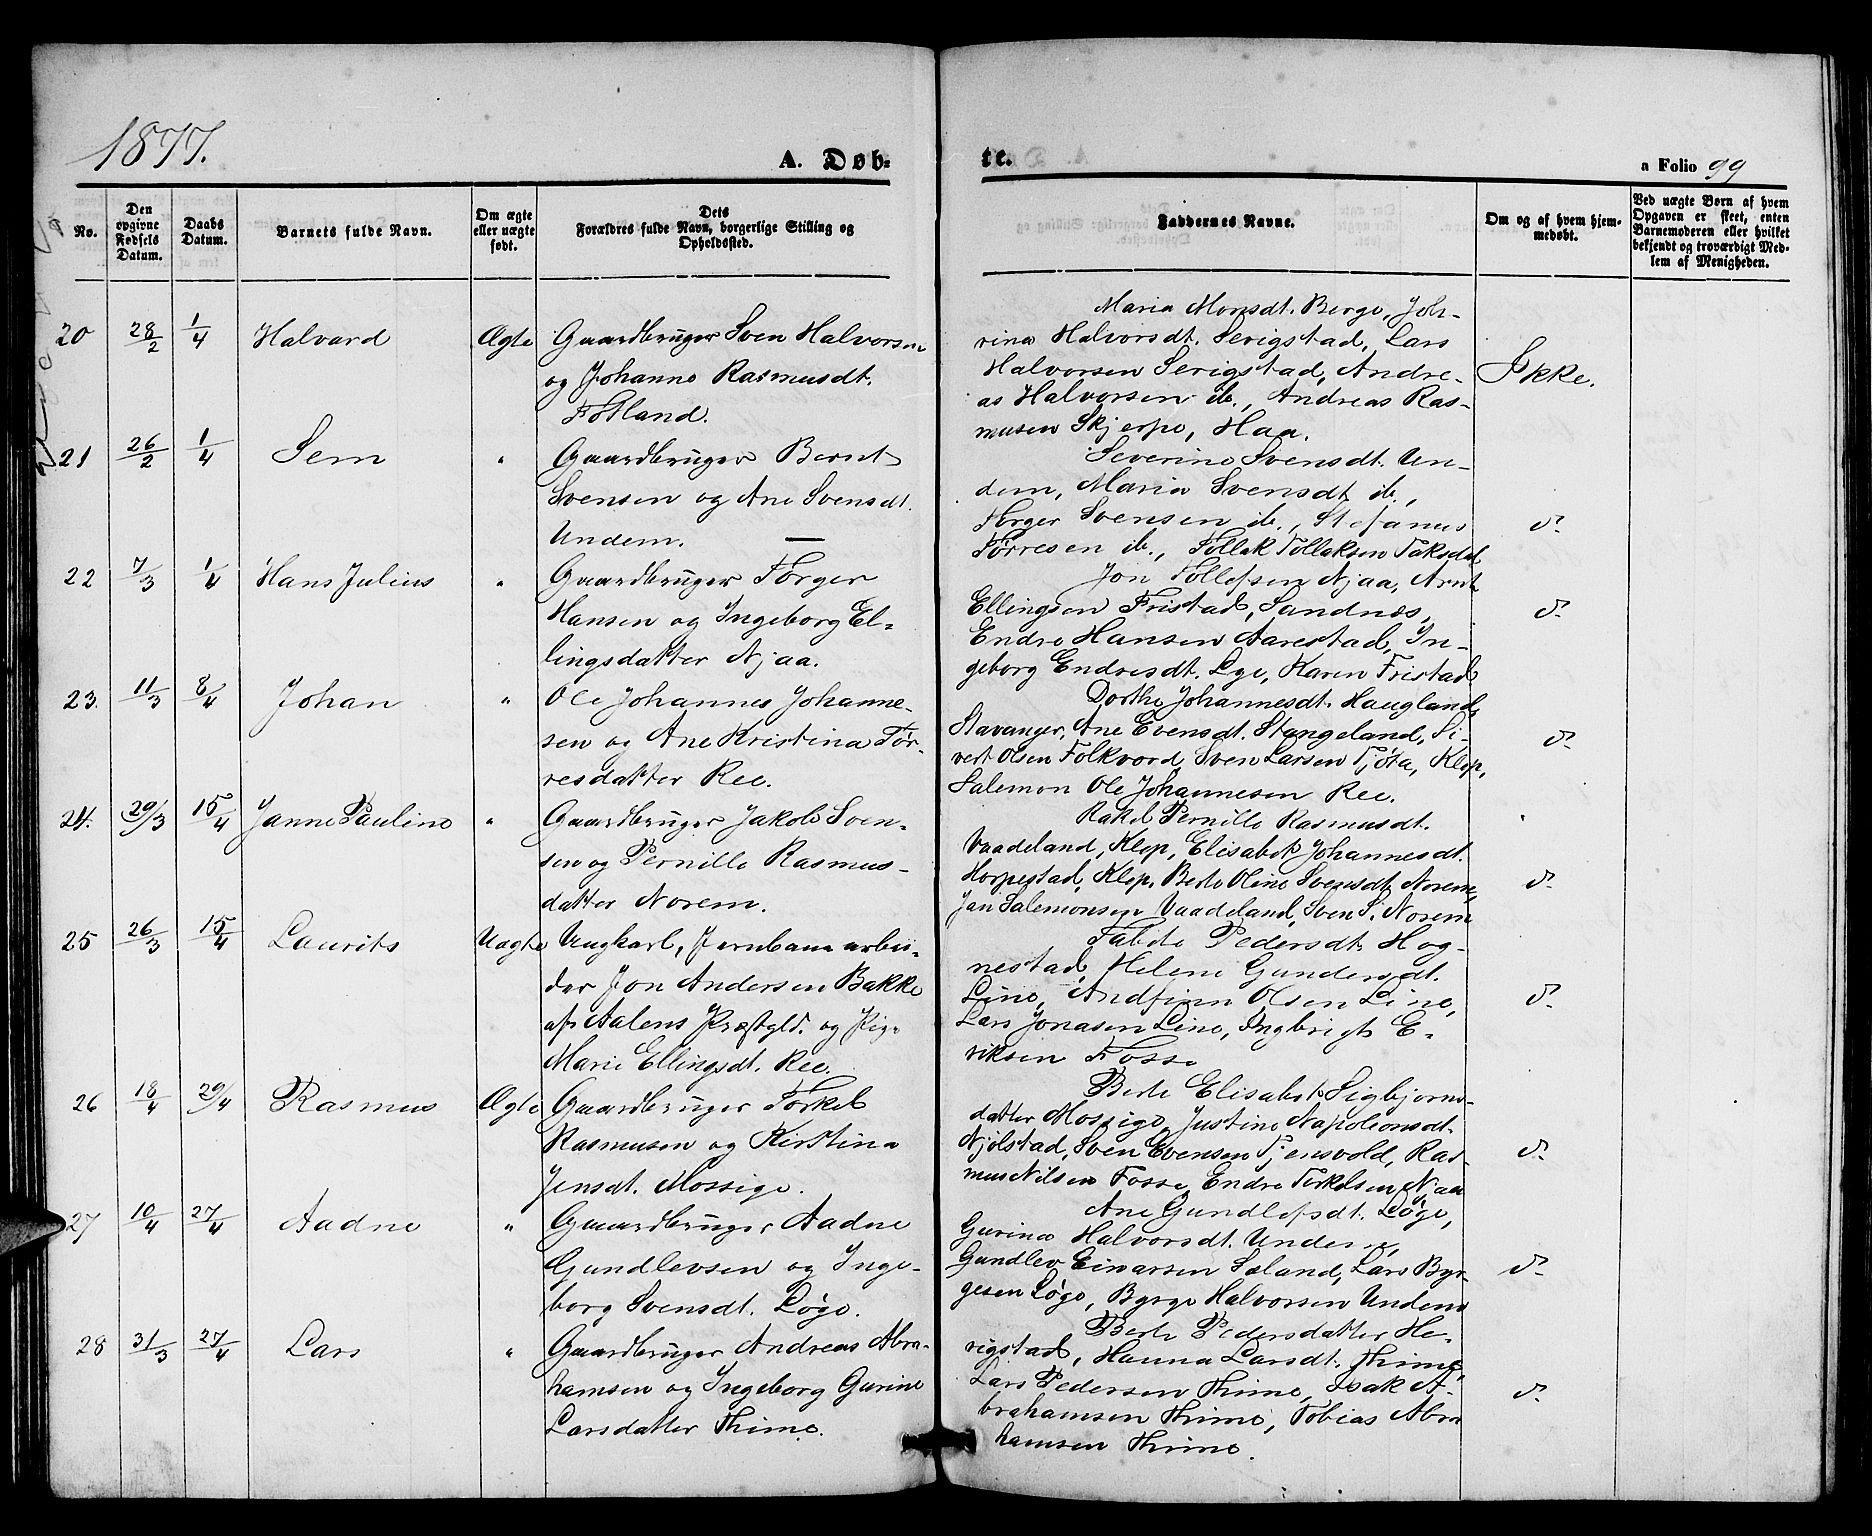 1877.
A. Døb-
te.
a Folio 99
No.
Den opgivne Fødsels Datum.
Daabs Datum.
Barnets fulde Navn.
Om ægte eller uægte født.
Dets Forældres fulde Navn, borgerlige Stilling og Opholdssted.
Faddernes Navne.
Om og af hvem hjem-medøbt.
Ved uægte Børn af hvem Opgaven er skeet, enten Barnemoderen eller hvilket bekjendt og troværdigt Medlem af Menigheden.
20 28/2 1/4 Halvard Ægte Gaardbruger Sven Halvorsen
og Johanne Rasmusdt.
Fotland.
Maria Monsdt. Berge, Joh-
rina Halvorsdt. Serigstad, Lars
Halvorsen Serigstad, Andre-
as Halvorsen ib., Andreas Ras-
musen Skjerpe, Haa.
Ikke.
21 26/2 1/4 Sem " Gaardbruger Bernt
Svensen og Ane Svensdt.
Undem. —
Severine Svensdt. Un-
dem, Maria Svensdt ib.,
Torger Svensen ib., Stefanus
Tørresen ib., Tollak Tollaksen Taksdal
d.
22 7/3 1/4 Hans Julius " Gaardbruger Torger
Hansen og Ingeborg El-
lingsdatter Njaa.
Jon Tollefsen Njaa, Arnt
Ellingsen Fristad, Sandnæs,
Endre Hansen Aarestad, In-
geborg Endresdt. Lye, Karen Fristad
d.
23. 11/3 8/4 Johan " Ole Johannes Johanne-
sen og Ane Kristina Tør-
resdatter Ree.
Dorthe Johannesdt. Haugland,
Stavanger, Ane Evensdt. Stangeland, Si-
vert Olsen Folkvord, Sven Larsen Tjøta, Klep,
Salemon Ole Johannesen Ree.
d.
24. 29/3 15/4 Janne Pauline " Gaardbruger Jakob Sven-
sen og Pernille Rasmus-
datter Norem.
Rakel Pernille Rasmusdt.
Vaadeland, Klep, Elisabet Johannesdt.
Horpestad, Klep, Berte Oline Svensdt. Norem,
Jan Salemonsen Vaadeland, Sven S. Norem
d.
25 26/3 15/4 Laurits Uægte Ungkarl, Jernbanearbei-
der Jon Andersen Bakke
af Aalens Præstgld. og Pige
Marie Ellingsdt. Ree.
Tabite Pedersdt. Hog-
nestad, Helene Gundersdt.
Line, Andfinn Olsen Line,
Lars Jonasen Line, Ingbrigt E-
riksen Fosse
d.
26 18/4 29/4 Rasmus Ægte Gaardbruger Torkel
Rasmusen og Kirstina
Jensdt. Mossige.
Berte Elisabet Sigbjørns-
datter Mossige, Justine Napoleonsdt.
Njølstad, Sven Evensen Tjensvold, Ras-
mus Nilsen Fosse, Endre Torkelsen Njaa
d.
27 10/4 27/4 Aadne " Gaardbruger Aadne
Gundlevsen og Inge-
borg Svensdt. Løge.
Ane Gundlefsdt. Løge,
Gurina Halvorsdt. Undem,
Gundlev Einarsen Søland, Lars Byr-
gesen Løge, Byrge Halvorsen Undem
d.
28 31/3 27/4 Lars " Gaardbruger Andreas Abra-
hamsen og Ingeborg Gurine
Larsdatter Thime.
Berte Pedersdatter He-
rigstad, Hanna Larsdt. Thime,
Lars Pedersen Thime, Isak A-
brahamsen Thime, Tobias Abra-
hamsen Thime.
d.